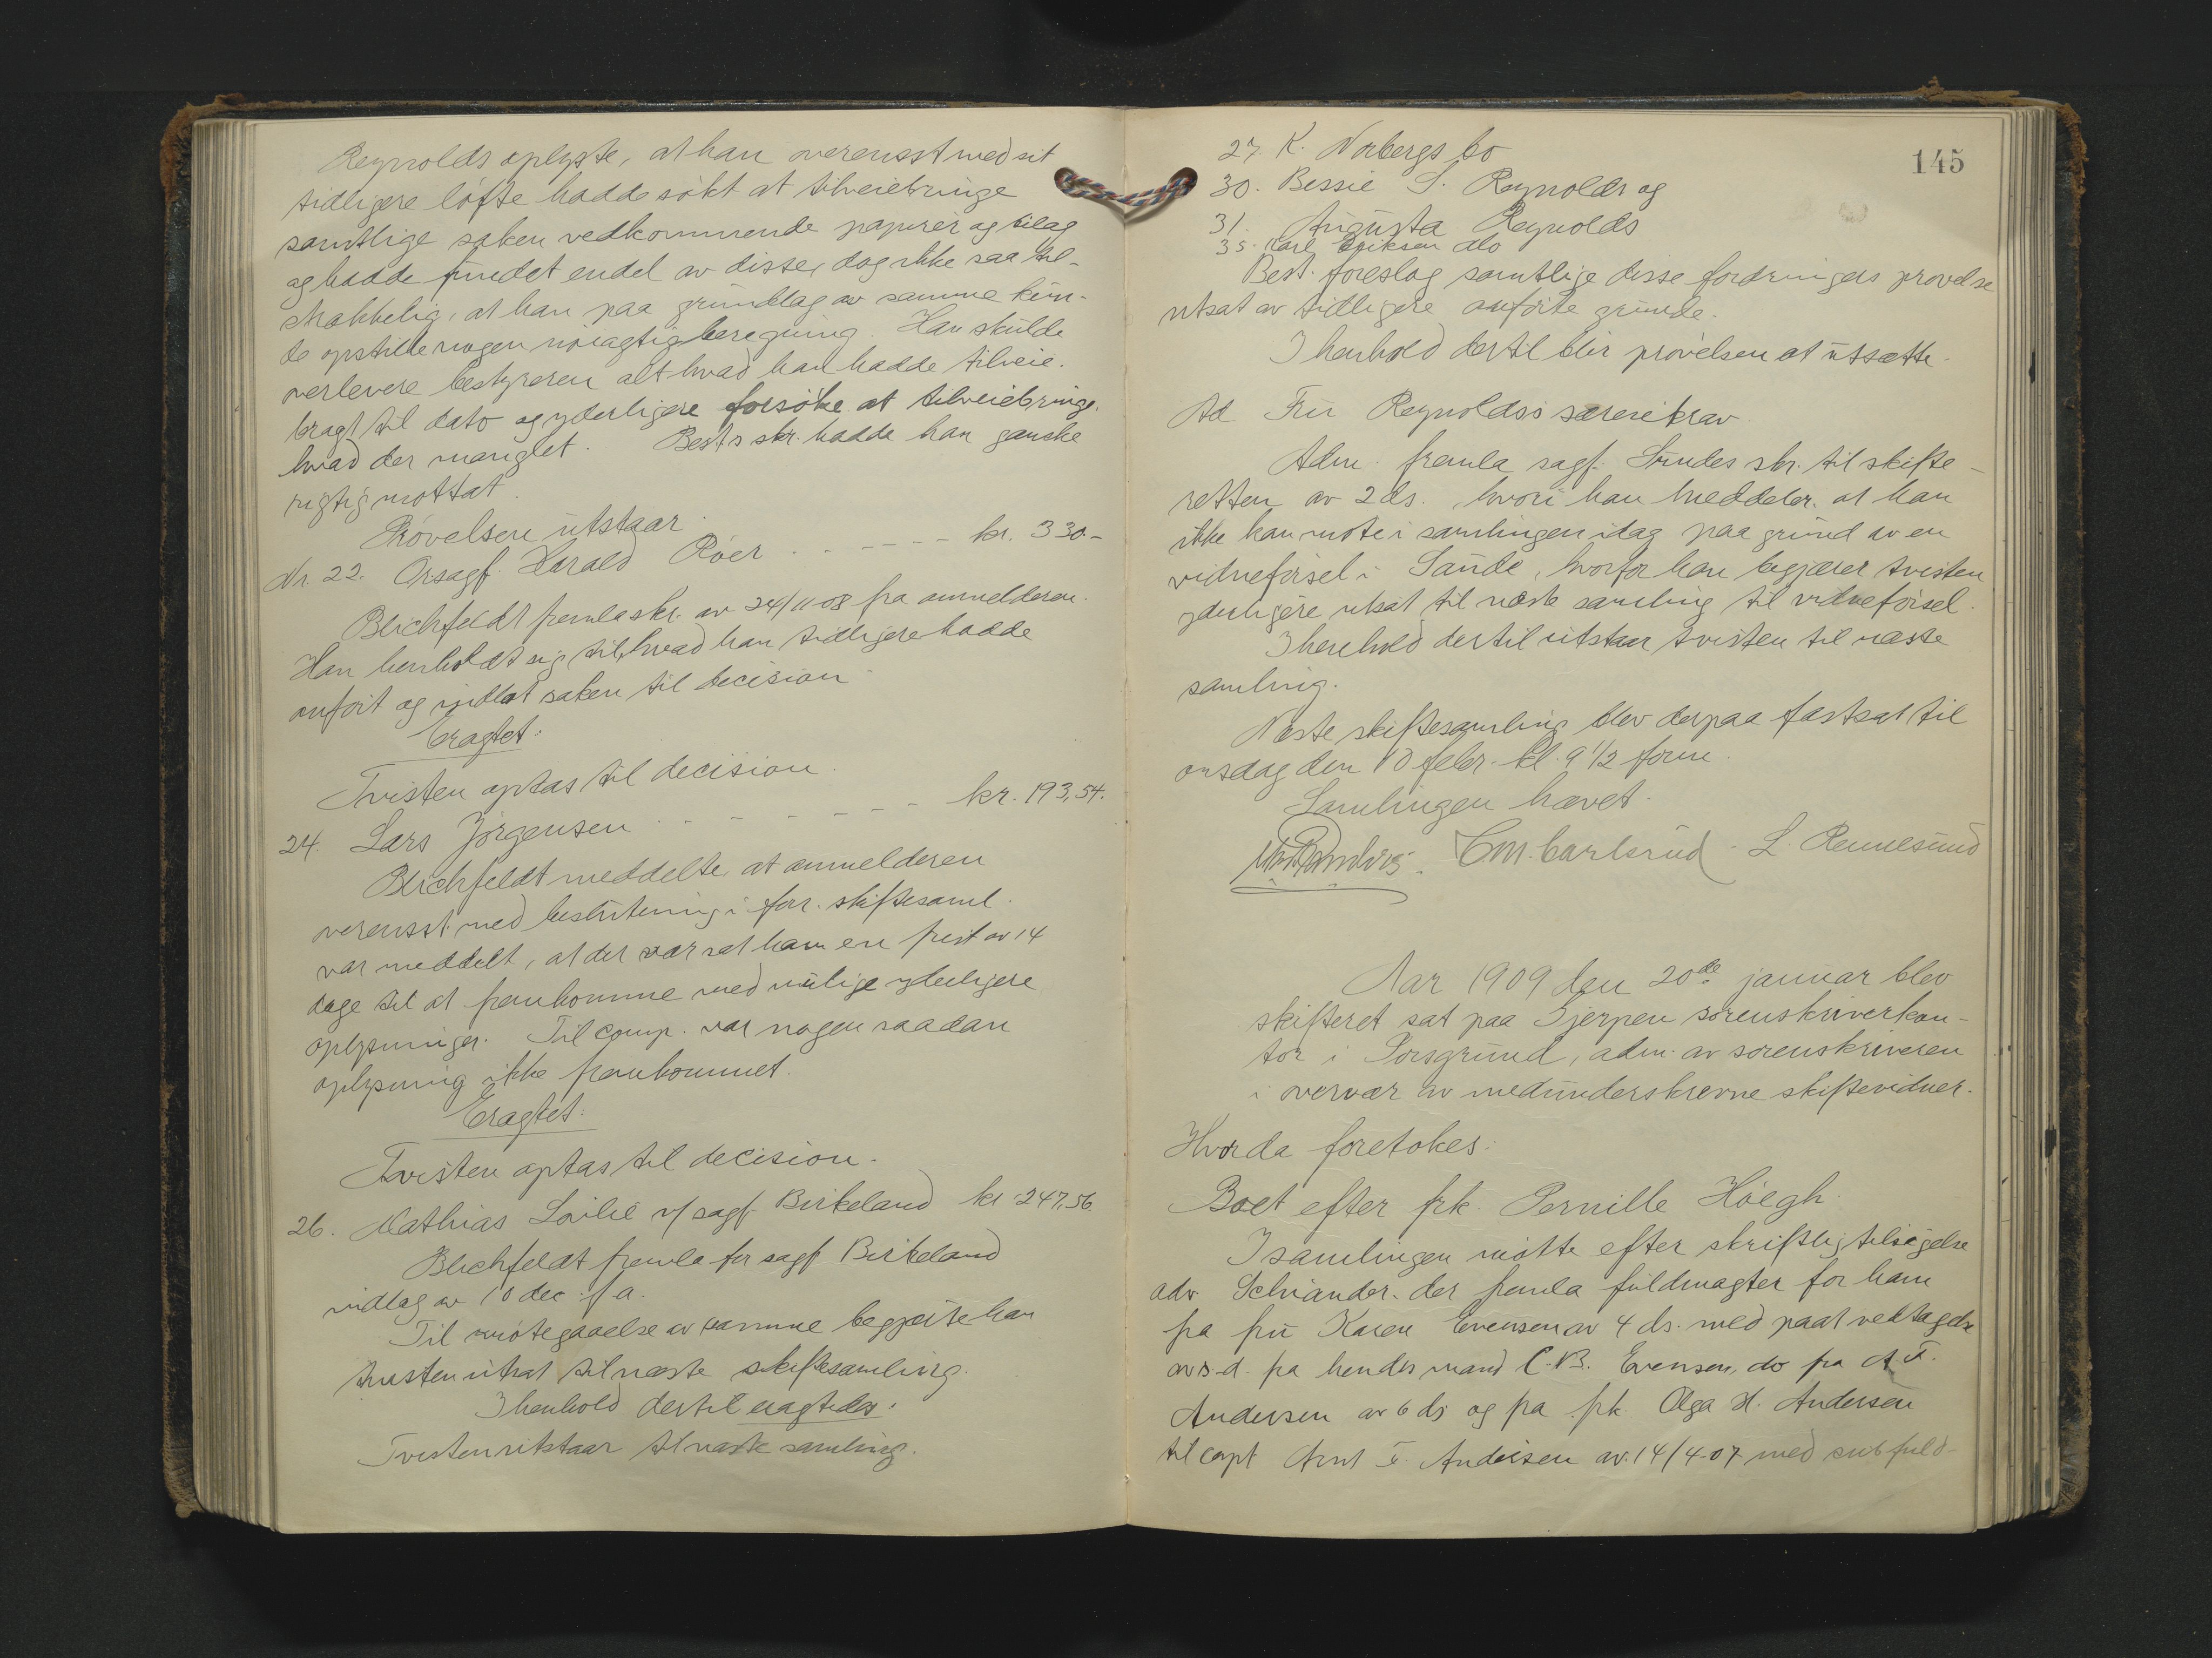 Reynolds oplyste, at han overensst med sit
tidligere löfte hadde sökt at tilveiebringe
samtlige saken vedkommende papirer og bilag
og hadde fundet endel av disse, dog ikke saa til-
strækkelig, at han paa grundlag av samme kun-
de opstille nogen nöiagtig beregning. Han skulde
overlevere bestyreren alt hvad han hadde tilveie-
bragt til dato og yderligere forsöke at tilveiebringe
hvad der manglet. Best's skr. hadde han ganske
rigtig mottat.
Prövelsen utstaar.
Nr. 22. Orsagf. Harald Röer - - - - - kr. 330.-
Blichfeldt fremla skr. av 24/11-08 fra anmelderen.
Han henholdt sig til, hvad han tidligere hadde
anfört og indlot saken til decision
Eragtet:
Tvisten optas til decision.
24. Lars Jörgensen - - - - - - kr. 193,54.
Blichfeldt meddelte, at anmelderen
overensst. med beslutning i forr. skiftesaml.
var meddelt, at der var sat ham en frist av 14
dage til at fremkomme med mulige yderligere
oplysninger. Til comp. var nogen saadan
oplysning ikke fremkommet.
Eragtet:
Tvisten optas til decision.
26. Mathias v/ sagf. Birkeland kr. 247,56.
Blichfeldt fremla for sagf. Birkeland
indlag av 10 dec. f.a.
Til imötegaaelse av samme begjærte han
tvisten utsat til næste skiftesamling.
I henhold dertil eragtedes:
Tvisten utstaar til næste samling.
145
27. K. Norbergs bo
30. Bessie S. Reynolds og
31. Augusta Reynolds
35. Carl Eriksen do
Best. foreslog samtlige disse fordringers prövelse
utsat av tidligere anförte grunde.
I henhold dertil blir prövelsen at utsætte.
Ad Fru Reynolds's særeiekrav
Adm. fremla sagf. Lundes skr. til skifte-
retten av 2 ds., hvori han meddeler, at han
ikke kan möte i samlingen idag paa grund av en
vidneförsel i Sande, hvorfor han begjærer tvisten
yderligere utsat til næste samling til vidneförsel.
I henhold dertil utstaar tvisten til næste
samling.
Næste skiftesamling blev derpaa fastsat til
onsdag den 10 febr. kl. 9 1/2 form.
Samlingen hævet.
C.M. Carlsrud L. Rennesund
Aar 1909 den 20de januar blev
skifteret sat paa Gjerpen sorenskriverkon-
tor i Porsgrund, adm. av sorenskriveren
i overvær av medunderskrevne skiftevidner.
Hvorda foretokes:
Boet efter frk. Pernille Höegh.
I samlingen mötte efter skriftlig tilsigelse
adv. Schiander, der fremla fuldmagter for ham
fra fru Karen Evensen av 4 ds. med paat. vedtagelse
av s.d. fra hendes mand C.B. Evensen, do fra A.F.
Andersen av 6 ds og fra frk. Olga H. Andersen
til capt Arnt F. Andersen av 14/4-07 med subfuld-